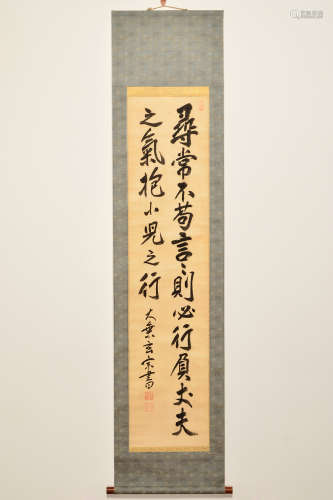 尋常不苟言〻則必行負丈夫
之氣抱小児之行
大乗玄宗書